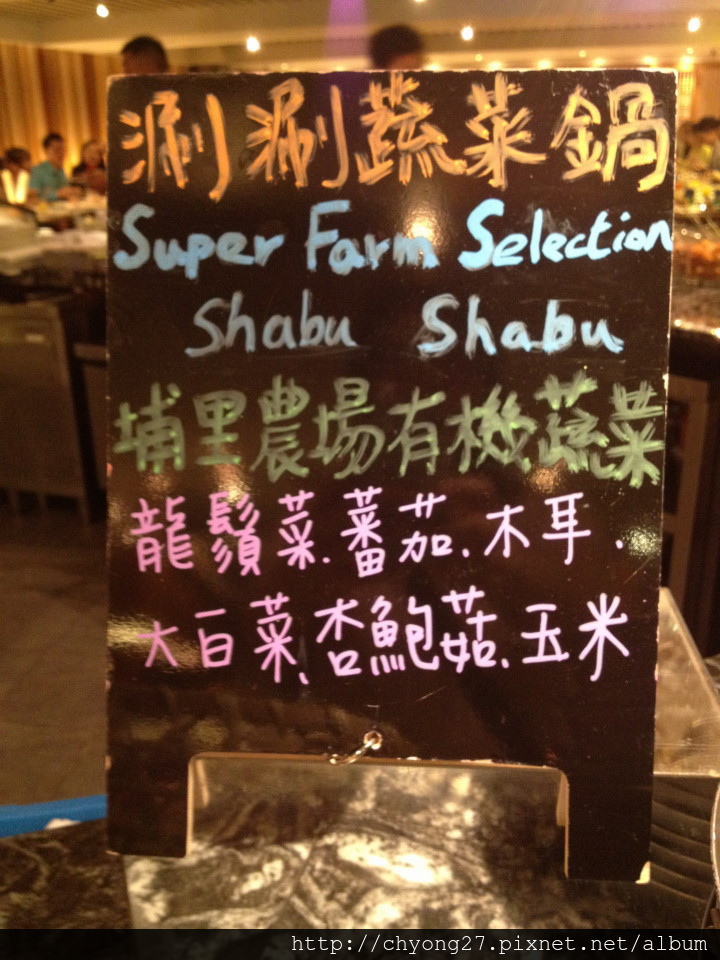 涮涮蔬菜鍋
Super Farm Selection
Shabu Shabu
埔里農場有機蔬菜
龍鬚菜.蕃茄.木耳.
大白菜.杏鮑菇.玉米
http://chyong27.pixnet.net/album